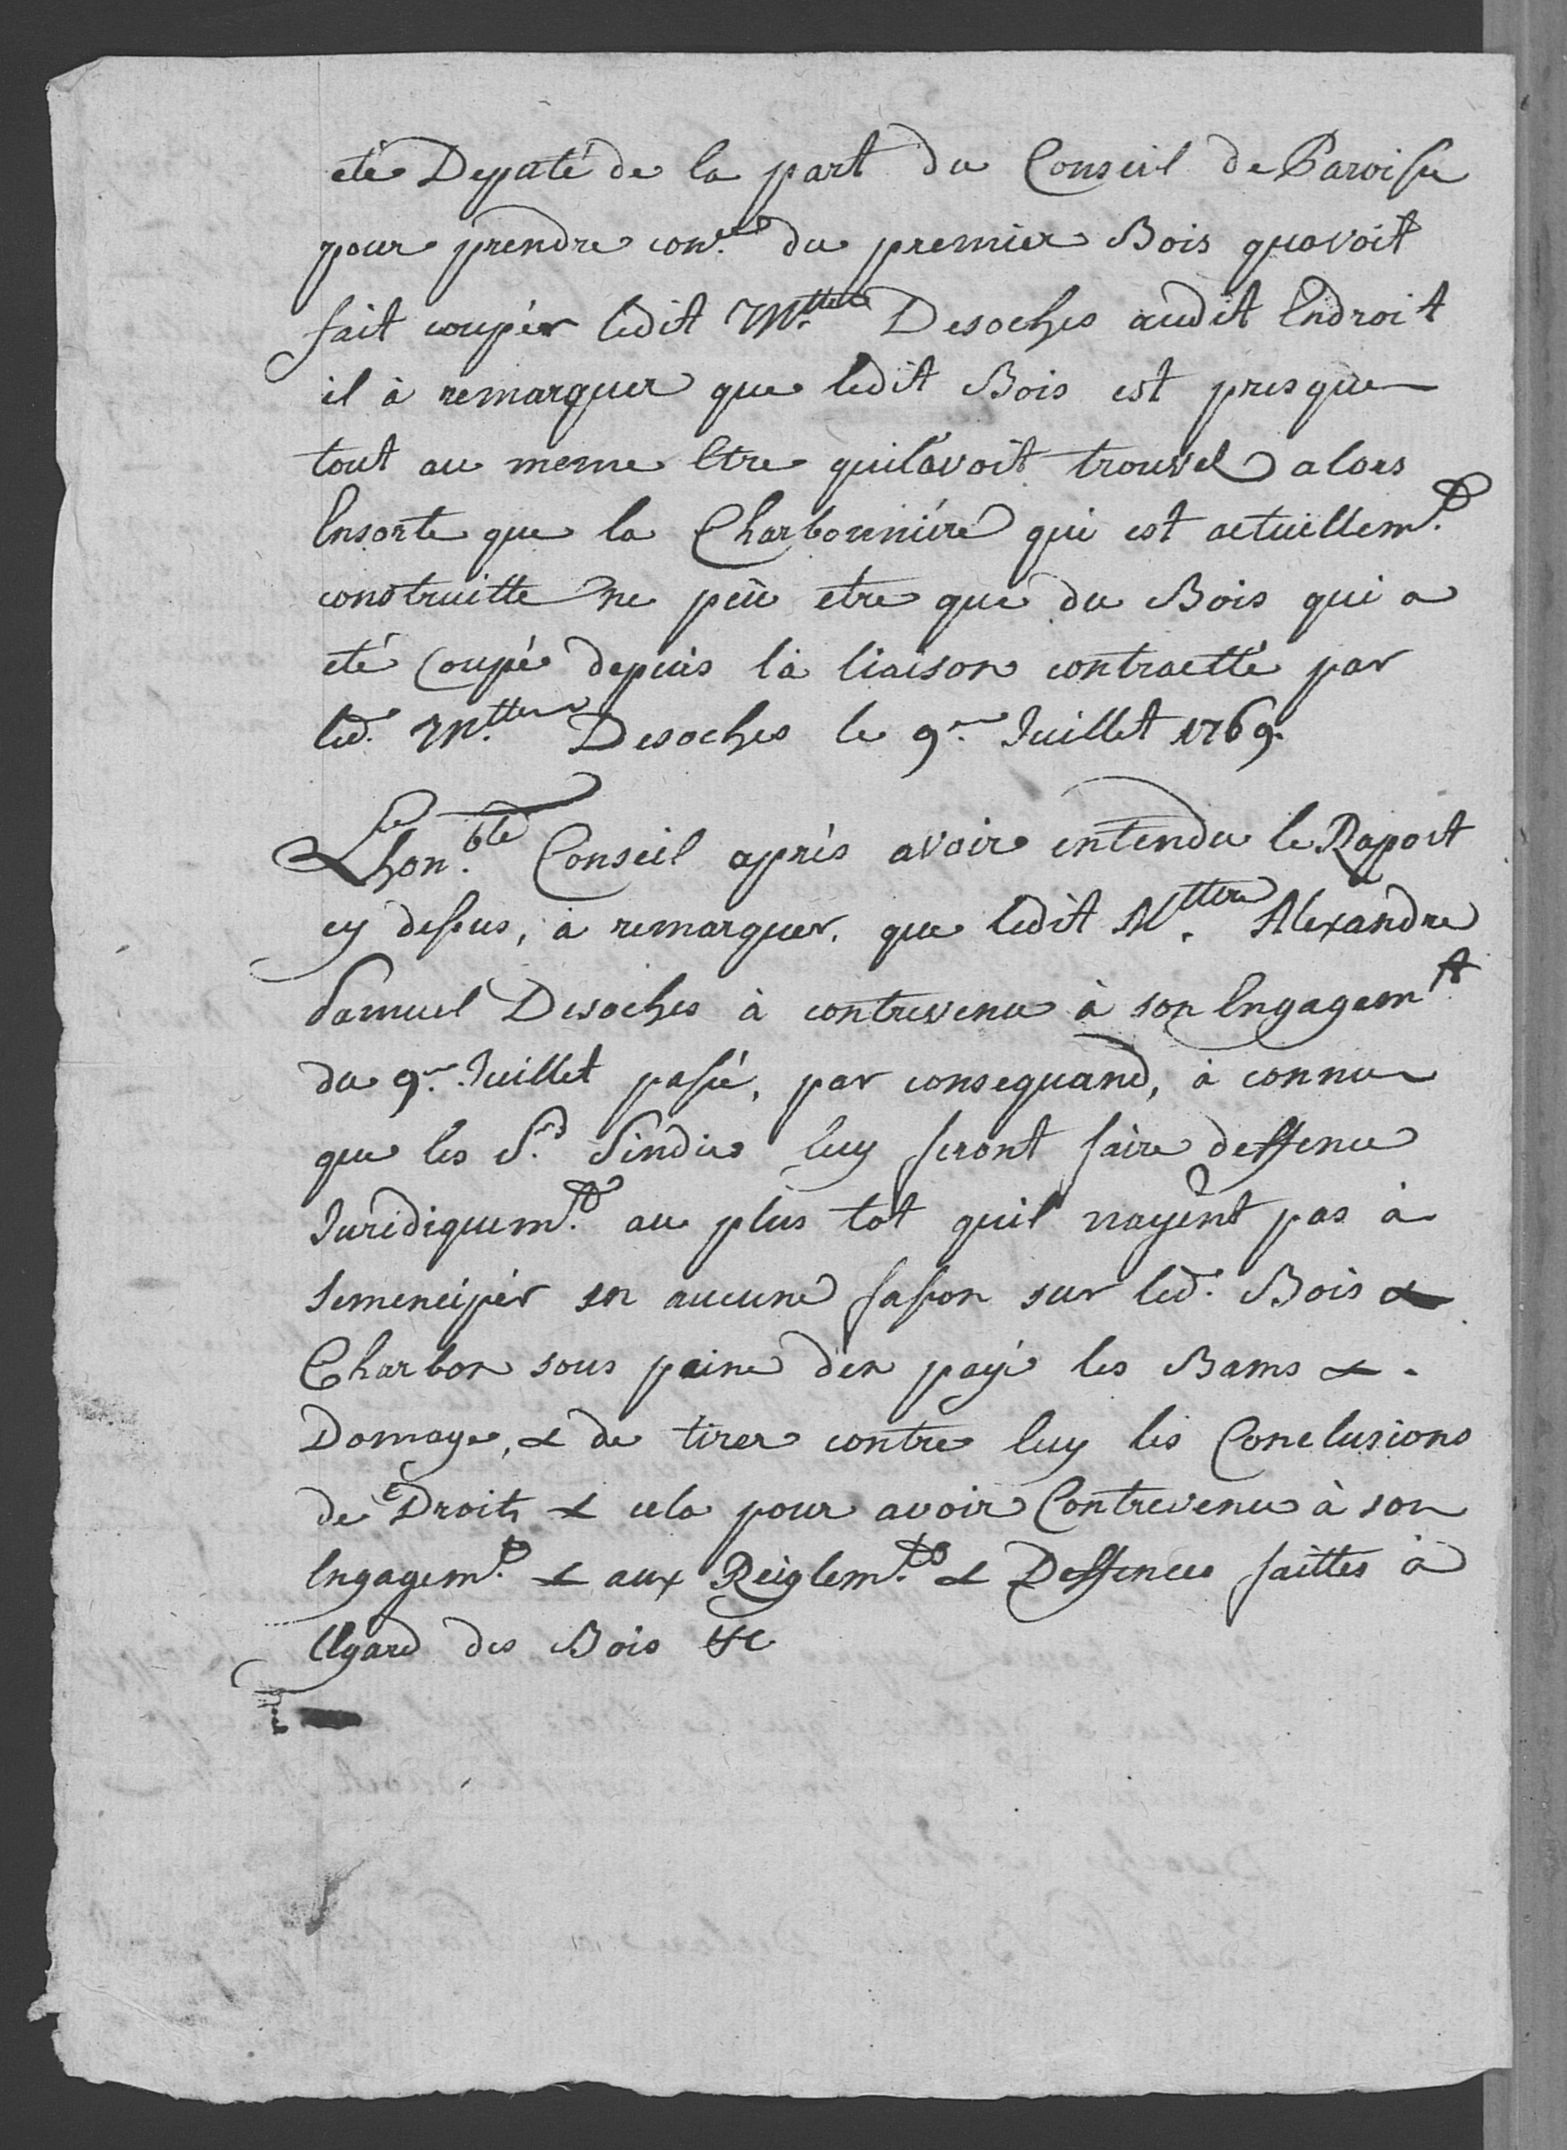 eté Deputé de la part du Conseil de Paroisse
pour prendre con.ce du premier Bois quavoit
fait coupér ledit M.ttre Desoches audit Endroit
il à remarquer que ledit Bois est presque
tout au meme Etre quilavoit trouvel alors
Ensorte que la Charbonniére qui est actuellem.t
construitte ne peù etre que du Bois qui a
eté Coupé depuis la liaison contractté par
led. M.ttre Desoches le 9.me Juillet 1769.
Lhon.ble Conseil aprés avoir entendu le Raport
cy dessus, à remarquer, que ledit M.ttre Alexandre
Samuel Desoches à contrevenu à son Engagem.t
du 9.me Juillet passé, par consequand, à connu
que les S.rs Sindics luy feront faire deffence
Juridiquem.t au plus tot quil nayent pas à
semencipér en aucune fasson sur led. Bois &
Charbon sous peine den payé les Bams &
Domage, & de tirer contre luy les Conclusions
de Droits & cela pour avoir Contrevenu à son
Engagem.t & aux Reiglem.ts & Deffences faittes à
Elgard des Bois &c